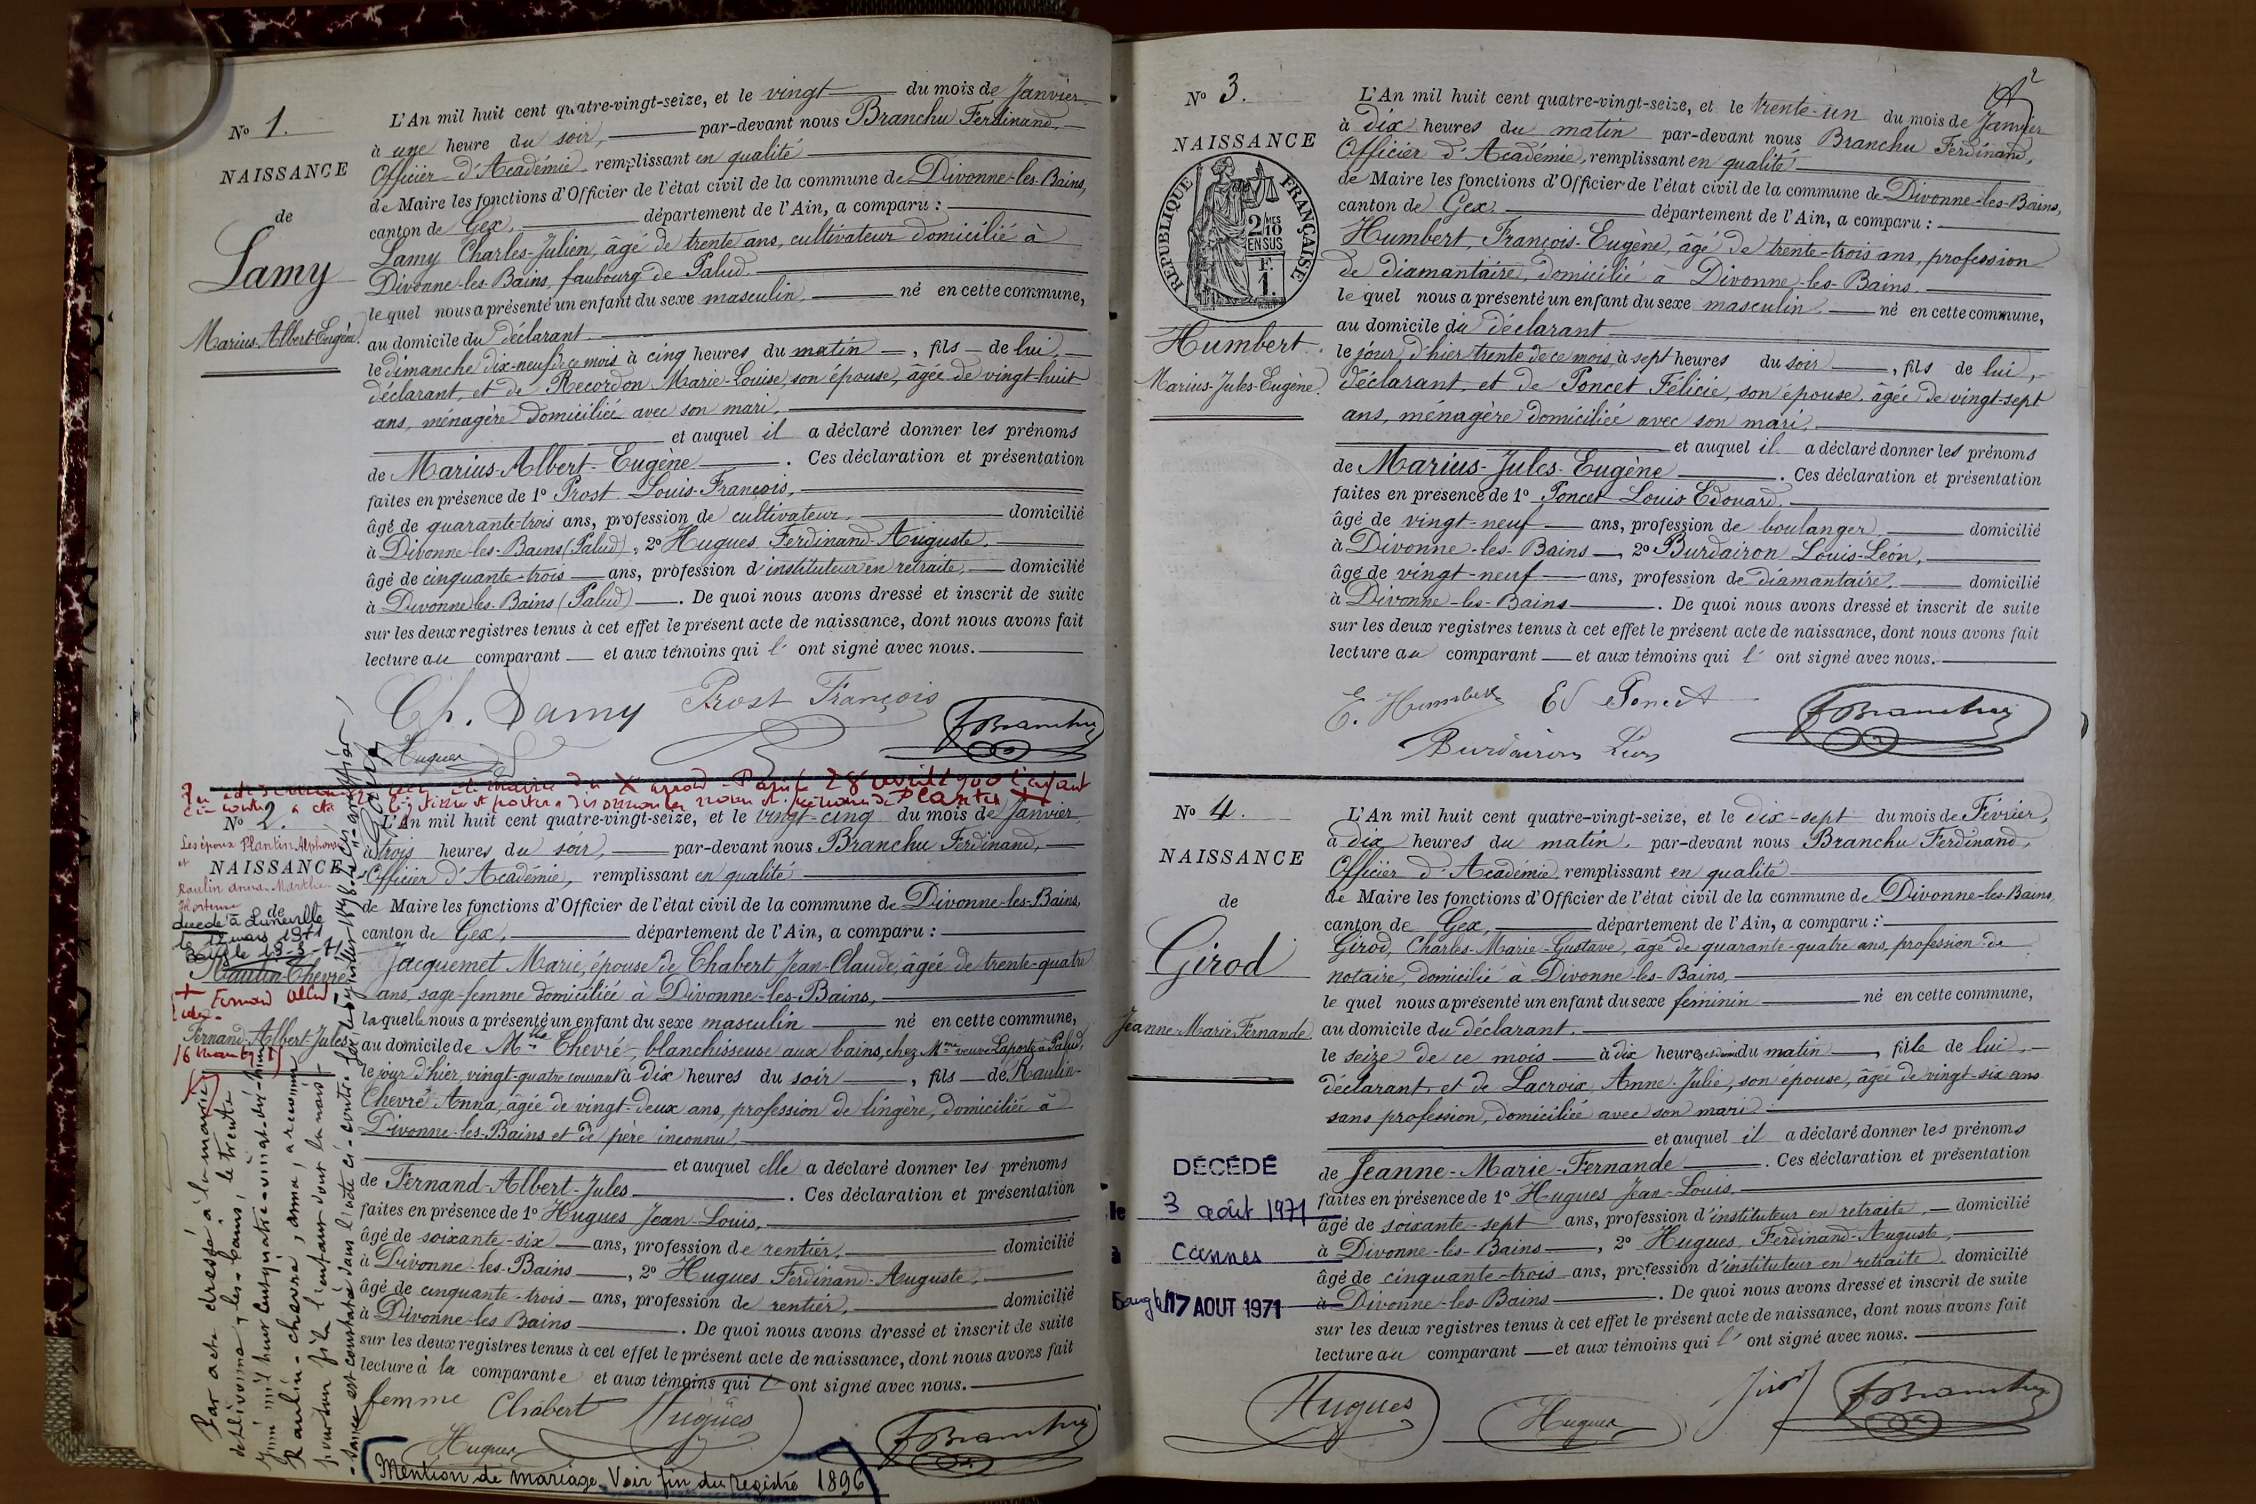 N° 1.
NAISSANCE
de
Lamy
Marius-Albert-Eugène.
L'An mil huit cent quatre-vingt-seize, et le vingt du mois de Janvier
à une heure du soir, par-devant nous Branchu Ferdinand,
Officier d'Académie, remplissant en qualité
de Maire les fonctions d'Officier de l'état civil de la commune de Divonne-les-Bains,
canton de Gex, département de l'Ain, a comparu :
Lamy Charles-Julien, âgé de trente ans, cultivateur domicilié à
Divonne-les-Bains, faubourg de Palud.
lequel nous a présenté un enfant du sexe masculin, né en cette commune,
au domicile du déclarant
le dimanche dix-neuf de ce mois à cinq heures du matin, fils de lui,
déclarant, et de Recordon Marie-Louise, son épouse, âgée de vingt-huit
ans, ménagère domiciliée avec son mari,
et auquel il a déclaré donner les prénoms
de Marius-Albert-Eugène. Ces déclaration et présentation
faites en présence de 1° Prost Louis-François,
âgé de quarante-trois ans, profession de cultivateur, domicilié
à Divonne-les-Bains (Palud), 2° Hugues Ferdinand-Auguste,
âgé de cinquante-trois ans, profession d'instituteur en retraite, domicilié
à Divonne-les-Bains (Palud). De quoi nous avons dressé et inscrit de suite
sur les deux registres tenus à cet effet le présent acte de naissance, dont nous avons fait
lecture au comparant et aux témoins qui l'ont signé avec nous.
Ch. Lamy Prost François
Hugues F Branchu
mairie du X arrond Paris 28 avril 1900 l'enfant
ci-contre a été
N° 2.
Les époux Plantin Alphonse
et
NAISSANCE
Raulin Anna-Marthe
Hortense
de
décédé à Lunéville
le mars 1971
Raulin-Chevré
Fernand Albert
Jules
Fernand-Albert-Jules
L'An mil huit cent quatre-vingt-seize, et le vingt-cinq du mois de Janvier,
à trois heures du soir, par-devant nous Branchu Ferdinand,
Officier d'Académie, remplissant en qualité
de Maire les fonctions d'Officier de l'état civil de la commune de Divonne-les-Bains,
canton de Gex, département de l'Ain, a comparu :
Jacquemet Marie, épouse de Chabert Jean-Claude, âgée de trente-quatre
ans, sage-femme domiciliée à Divonne-les-Bains,
laquelle nous a présenté un enfant du sexe masculin né en cette commune,
au domicile de Mlle Chevré, blanchisseuse aux bains, chez Mme veuve Laporte à Palud,
le jour d'hier, vingt-quatre courant à dix heures du soir, fils de Raulin-
Chevré Anna, âgée de vingt-deux ans, profession de lingère, domiciliée à
Divonne-les-Bains et de père inconnu
et auquel elle a déclaré donner les prénoms
de Fernand-Albert-Jules. Ces déclaration et présentation
faites en présence de 1° Hugues Jean-Louis,
âgé de soixante-six ans, profession de rentier, domicilié
à Divonne-les-Bains, 2° Hugues Ferdinand-Auguste,
âgé de cinquante-trois ans, profession de rentier, domicilié
à Divonne-les-Bains. De quoi nous avons dressé et inscrit de suite
sur les deux registres tenus à cet effet le présent acte de naissance, dont nous avons fait
lecture à la comparante et aux témoins qui l'ont signé avec nous.
femme Chabert Hugues
Hugues F Branchu
Par acte dressé à la mairie
de Divonne-les-bains, le trente
juin mil huit cent quatre-vingt-dix-huit
Raulin-chevré, anna, a reconnu
pour son fils l'enfant dont la nais-
-sance est constatée dans l'acte ci-contre.
Mention de mariage. Voir fin du registre 1896
2
N° 3.
NAISSANCE
RÉPUBLIQUE FRANÇAISE
2/10 MES
EN SUS
F.
1.
Humbert
Marius-Jules-Eugène.
L'An mil huit cent quatre-vingt-seize, et le trente-un du mois de Janvier
à dix heures du matin par-devant nous Branchu Ferdinand,
Officier d'Académie, remplissant en qualité
de Maire les fonctions d'Officier de l'état civil de la commune de Divonne-les-Bains,
canton de Gex, département de l'Ain, a comparu :
Humbert, François-Eugène, âgé de trente-trois ans, profession
de diamantaire, domicilié à Divonne-les-Bains.
lequel nous a présenté un enfant du sexe masculin, né en cette commune,
au domicile du déclarant
le jour d'hier trente de ce mois, à sept heures du soir, fils de lui,
déclarant, et de Poncet Félicie, son épouse, âgée de vingt-sept
ans, ménagère domiciliée avec son mari,
et auquel il a déclaré donner les prénoms
de Marius-Jules-Eugène. Ces déclaration et présentation
faites en présence de 1° Poncet Louis Edouard,
âgé de vingt-neuf ans, profession de boulanger, domicilié
à Divonne-les-Bains, 2° Burdairon Louis-Léon,
âgé de vingt-neuf ans, profession de diamantaire, domicilié
à Divonne-les-Bains. De quoi nous avons dressé et inscrit de suite
sur les deux registres tenus à cet effet le présent acte de naissance, dont nous avons fait
lecture au comparant et aux témoins qui l'ont signé avec nous.
E. Humbert Ed Poncet F Branchu
Burdairon Léon
N° 4.
NAISSANCE
de
Girod
Jeanne-Marie-Fernande
DÉCÉDÉ
le 3 août 1971
à Cannes
17 AOUT 1971
L'An mil huit cent quatre-vingt-seize, et le dix-sept du mois de Février,
à dix heures du matin, par-devant nous Branchu Ferdinand,
Officier d'Académie, remplissant en qualité
de Maire les fonctions d'Officier de l'état civil de la commune de Divonne-les-Bains,
canton de Gex, département de l'Ain, a comparu :
Girod, Charles-Marie-Gustave, âgé de quarante-quatre ans, profession de
notaire, domicilié à Divonne-les-Bains,
lequel nous a présenté un enfant du sexe féminin né en cette commune,
au domicile du déclarant.
le seize de ce mois à dix heures du matin, fille de lui,
déclarant, et de Lacroix Anne-Julie, son épouse, âgée de vingt-six ans
sans profession, domiciliée avec son mari
et auquel il a déclaré donner les prénoms
de Jeanne-Marie-Fernande. Ces déclaration et présentation
faites en présence de 1° Hugues Jean-Louis,
âgé de soixante-sept ans, profession d'instituteur en retraite, domicilié
à Divonne-les-Bains, 2° Hugues Ferdinand-Auguste,
âgé de cinquante-trois ans, profession d'instituteur en retraite, domicilié
à Divonne-les-Bains. De quoi nous avons dressé et inscrit de suite
sur les deux registres tenus à cet effet le présent acte de naissance, dont nous avons fait
lecture au comparant et aux témoins qui l'ont signé avec nous.
Hugues Hugues Girod F Branchu